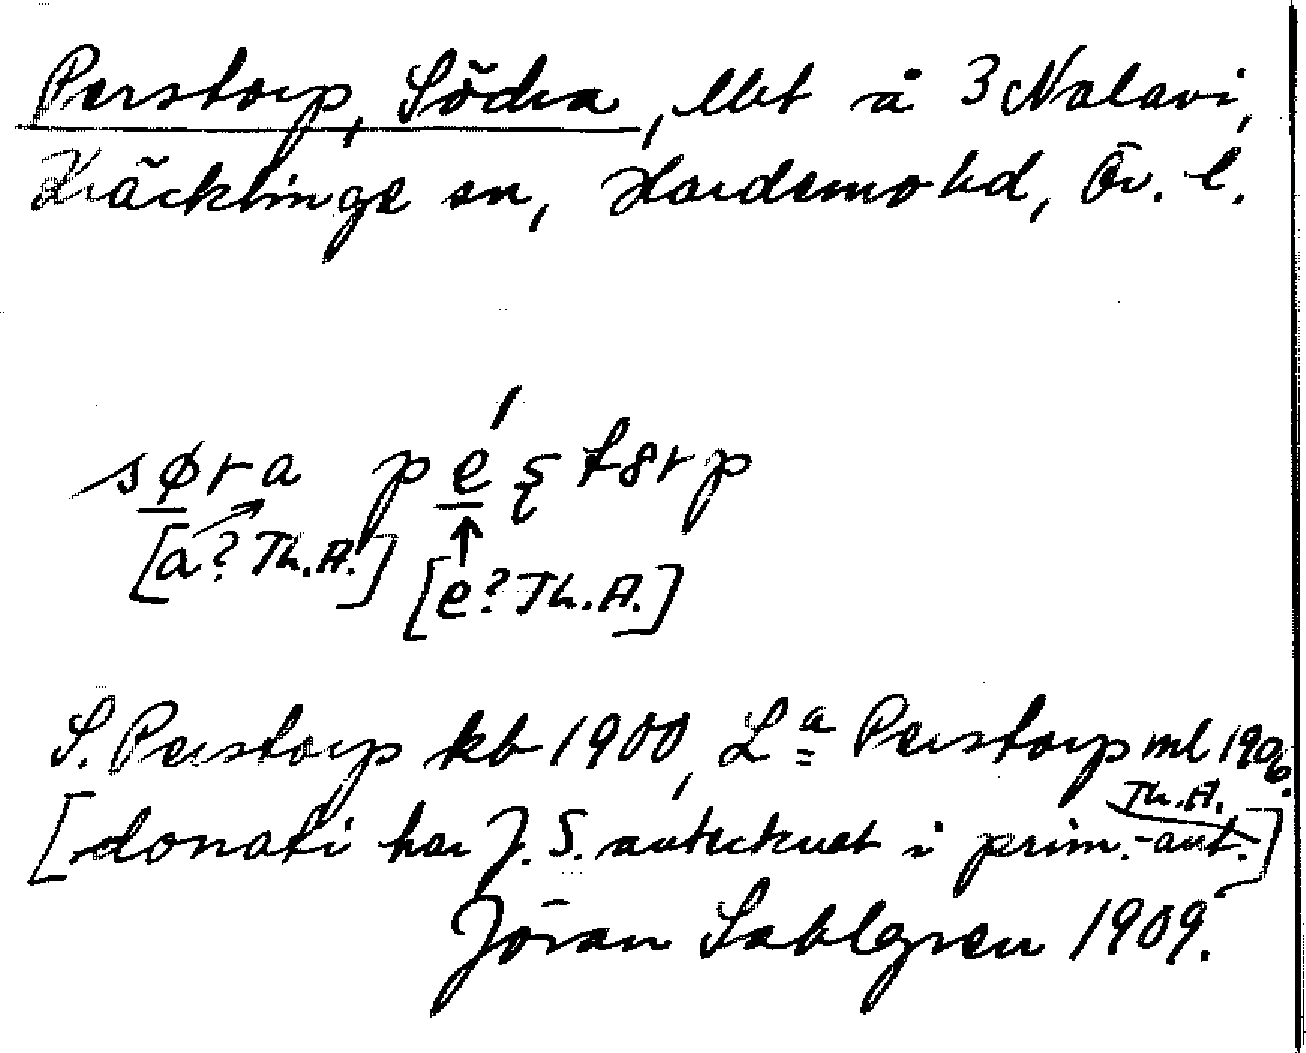 Perstorp, Södra, lbt å 3 Nalavi,
Kräcklinge sn, Hardemo hd, Ör. l.
søra péʂtørp
[a? Th.A.] [e? Th.A.]
S. Perstorp kb 1900, La Perstorp ml 1906.
[donati har J. S. antecknat i prim.-ant. Th.A.]
Jöran Sahlgren 1909.